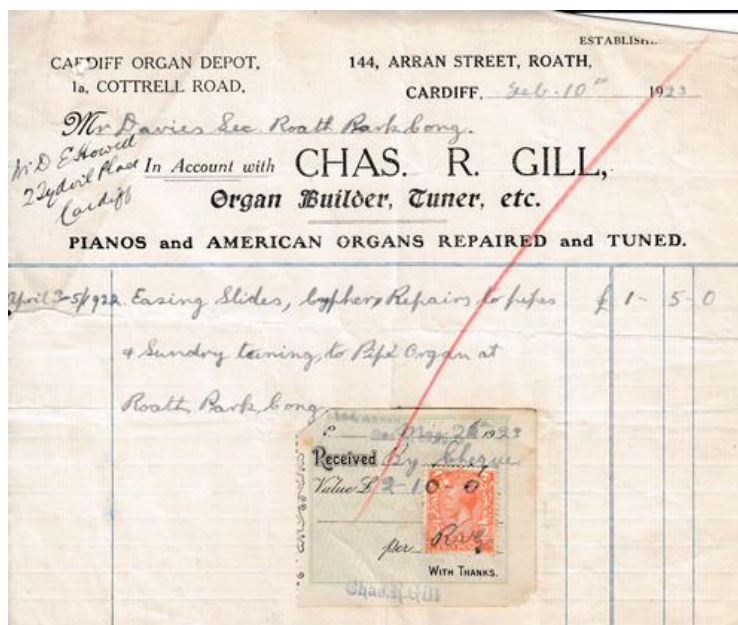 ESTABLISH
CARDIFF ORGAN DEPOT,
1a, COTTRELL ROAD.
144, ARRAN STREET, ROATH,
CARDIFF, Feb. 10th 1923
Mr Davies Sec. Roath Park Cong.
Mr D E Howell
2 Tydvil Place
Cardiff
In Account with CHAS. R. GILL,
Organ Builder, Tuner, etc.
PIANOS and AMERICAN ORGANS REPAIRED and TUNED.
April 3-5/1922 Easing Slides, Cyphers, Repairs to pipes £ 1- 5- 0
& Sundry tuning, to Pipe Organ at
Roath Park Cong
144, ARRAN
May 26th 1923
Received By Cheque
Value £ 2-10-0
per
WITH THANKS.
Chas. R. Gill